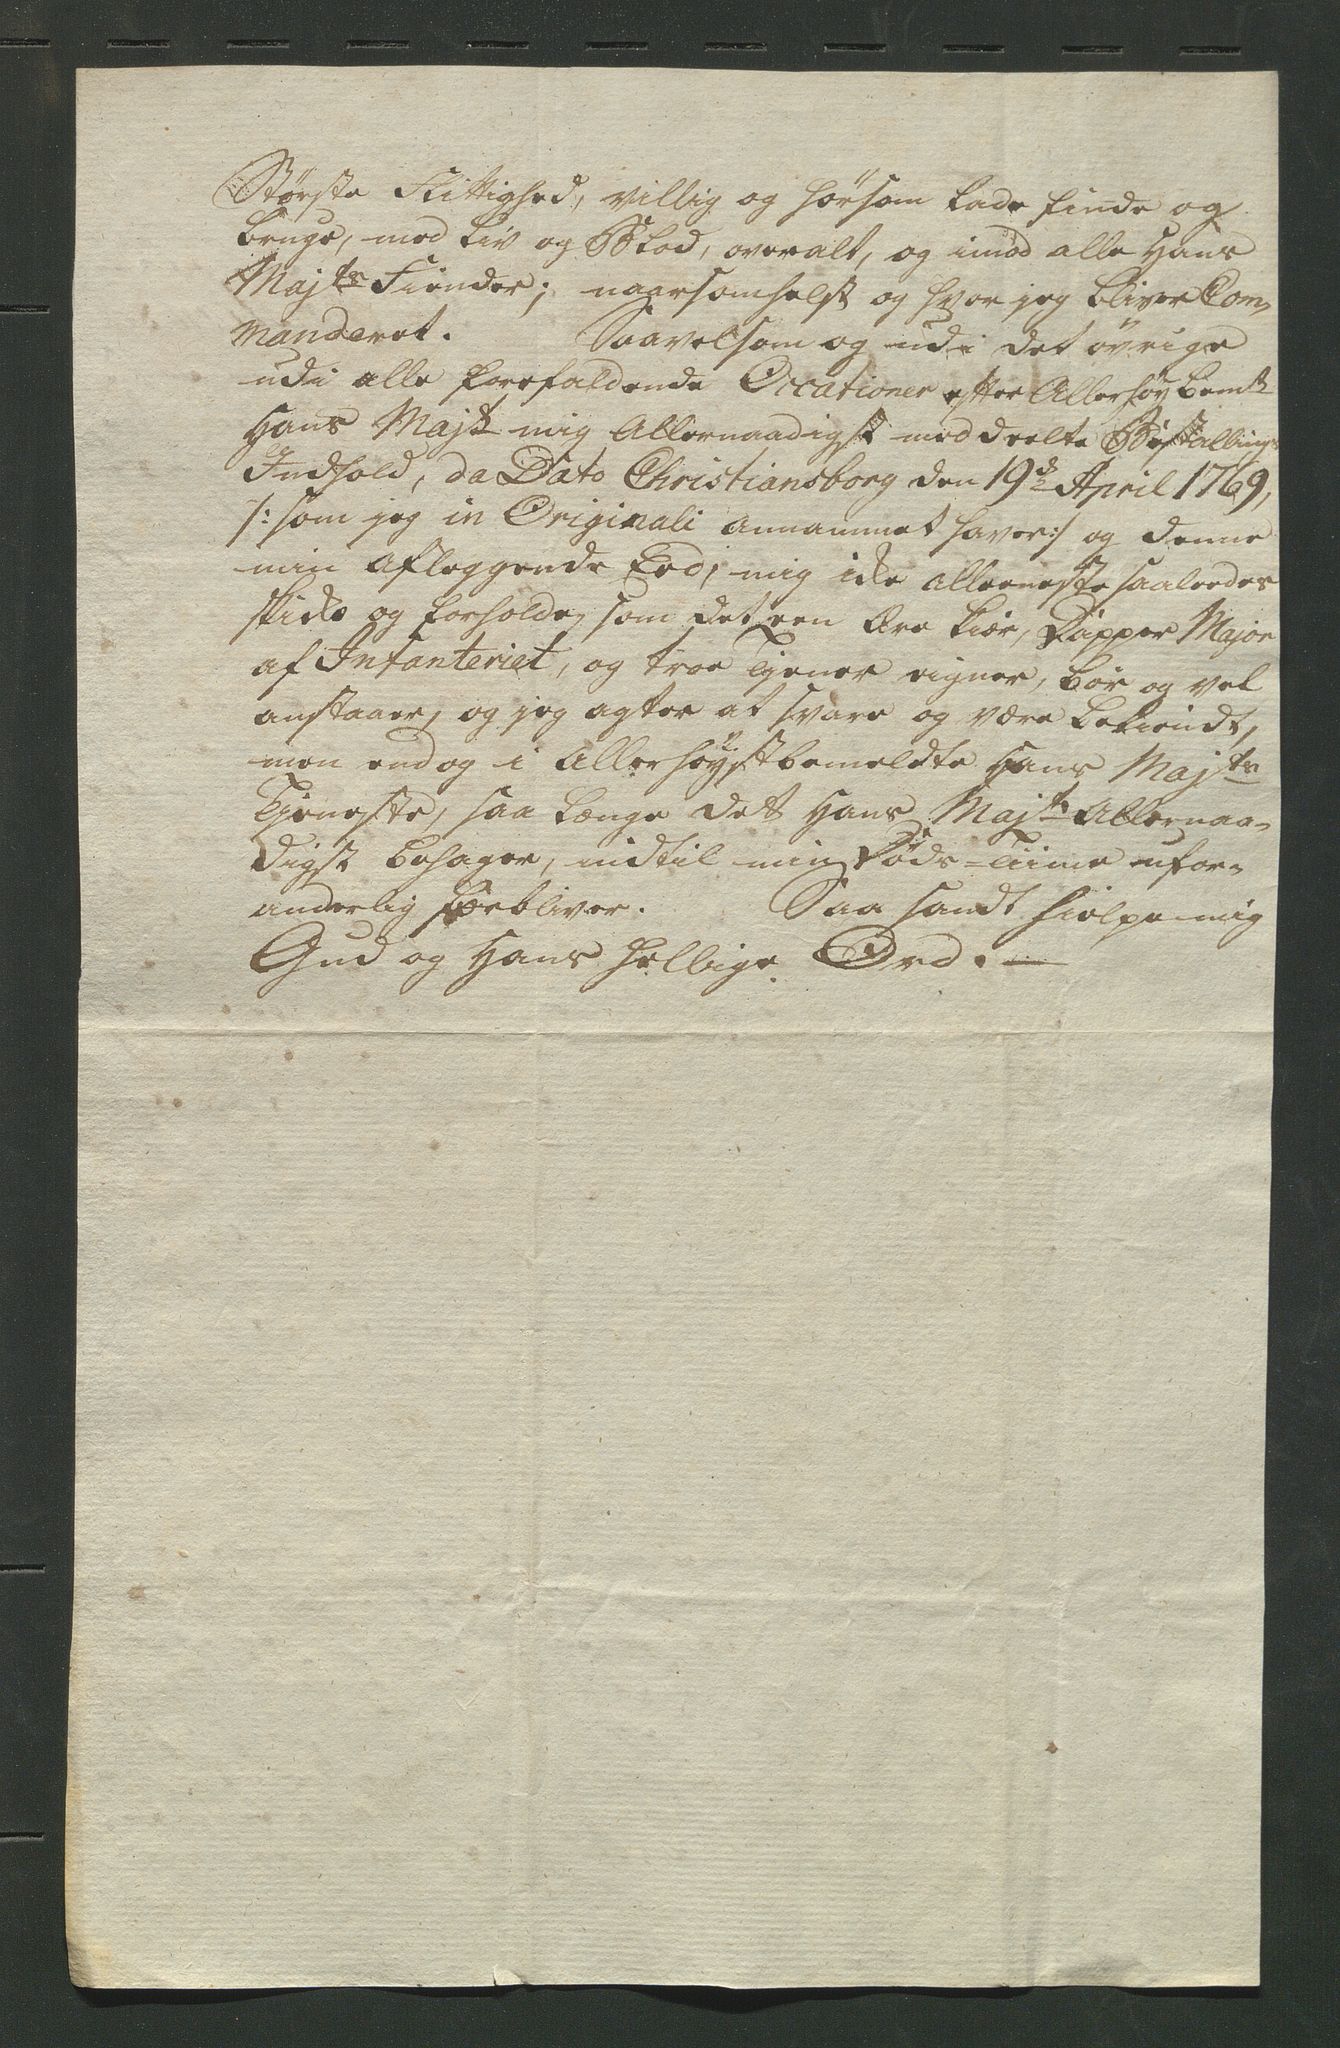 Største Flittighed, villig og hørsom lade finde og
bruge, med Liv og Blod, overalt, og imod alle Hans
Majts Fiender; naarsomhelst og hvor jeg bliver Com,
manderet. Saavelsom og udi det øvrige
udi alle forefaldende Occationer efter Allerhøybemte
Hans Majts mig Allernaadigst meddeelte Bestallings
Indhold, da Dato Christiansborg den 19de April 1769,
/: som jeg in Originali annammet haver:/ og denne
min aflæggende Eed, mig icke alleeneste saaledes
skicke og forholde, som det een Ære kiær, Tapper Major
af Infanteriet, og troe Tjener eigner, bør og vel
anstaaer, og jeg agter at svare og være bekiendt,
men endog i Allerhøystbemeldte Hans Majts
Tjeneste, saa længe det Hans Majts Allernaa-
digst behager, indtil min Døds-Tiime ufor-
anderlig forbliver. Saa sandt hielpe mig
Gud og Hans hellige Ord. —